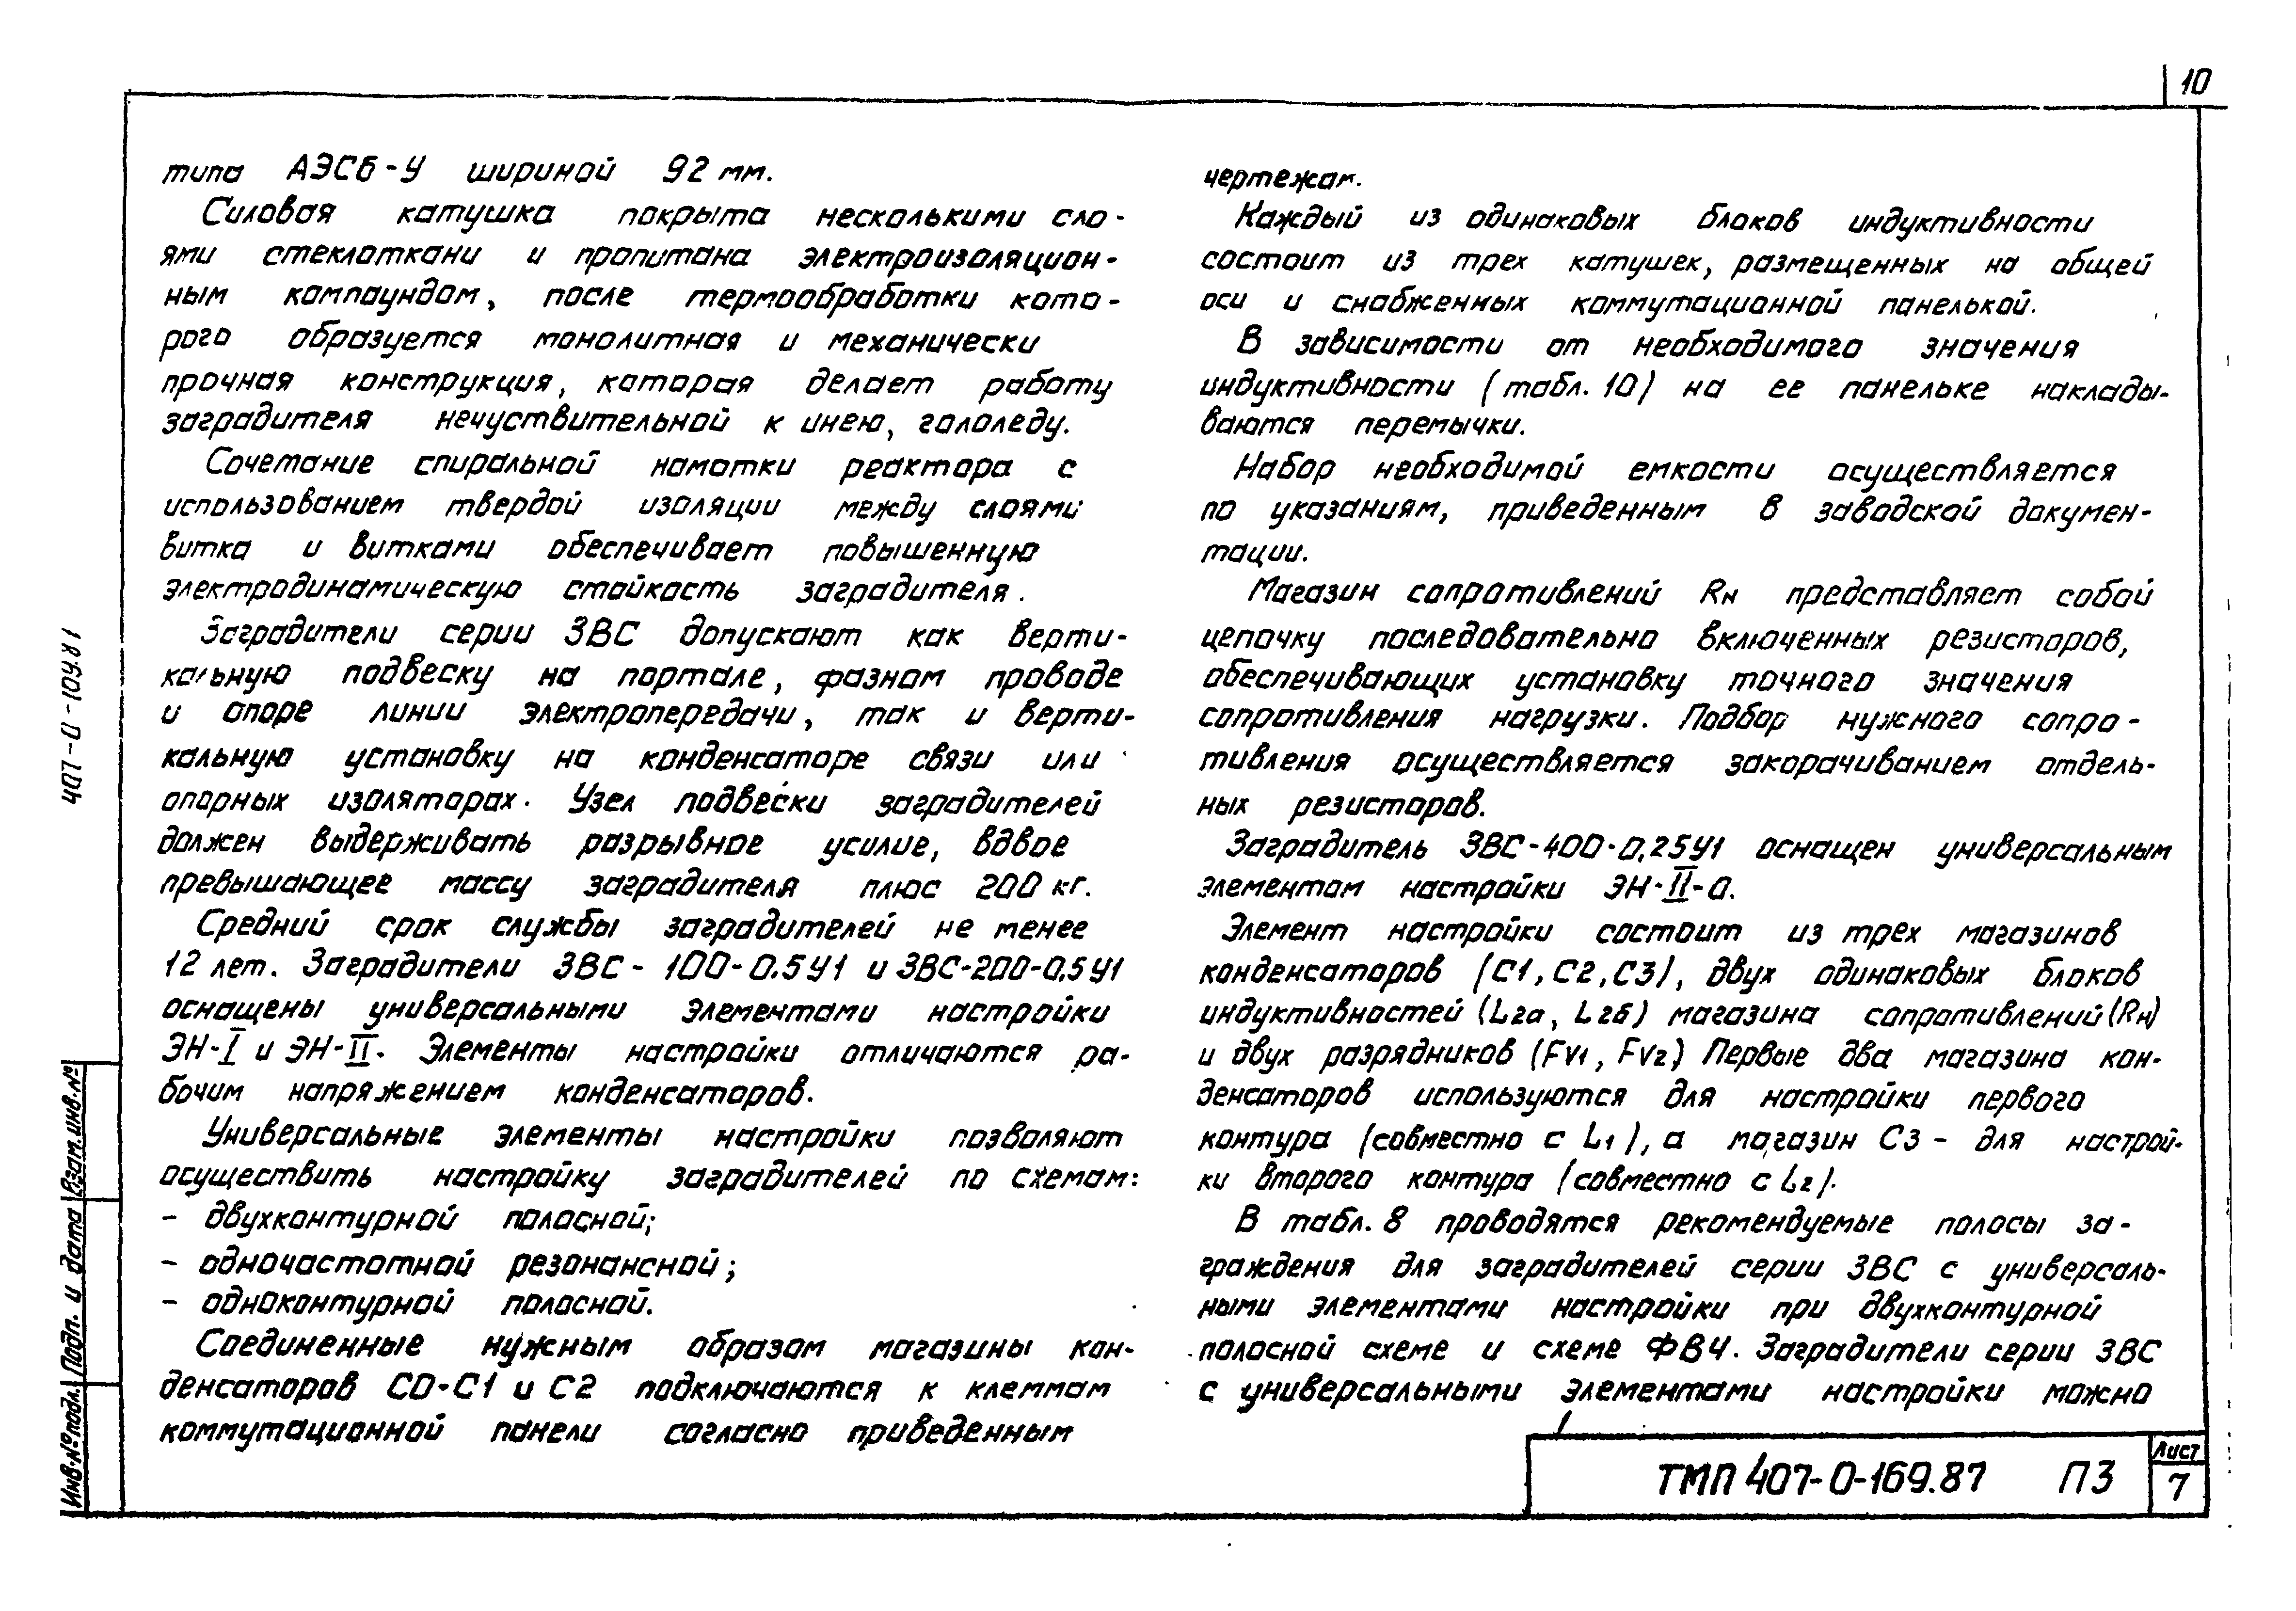 10
типа АЭСБ-У шириной 92 мм.
Силовая катушка покрыта несколькими сло-
ями стеклоткани и пропитана электроизоляцион-
ным компаундом, после термообработки кото-
рого образуется монолитная и механически
прочная конструкция, которая делает работу
заградителя нечуствительной к инею, гололеду.
Сочетание спиральной намотки реактора с
использованием твердой изоляции между слоями
витка и витками обеспечивает повышенную
электродинамическую стойкость заградителя.
Заградители серии ЗВС допускают как верти-
кальную подвеску на портале, фазном проводе
и опоре линии электропередачи, так и верти-
кальную установку на конденсаторе связи или
опорных изоляторах. Узел подвески заградителей
должен выдерживать разрывное усилие, вдвое
превышающее массу заградителя плюс 200 кг.
Средний срок службы заградителей не менее
12 лет. Заградители ЗВС-100-0.5У1 и ЗВС-200-0,5У1
оснащены универсальными элементами настройки
ЭН-I и ЭН-II. Элементы настройки отличаются ра-
бочим напряжением конденсаторов.
Универсальные элементы настройки позволяют
осуществить настройку заградителей по схемам:
- двухконтурной полосной;
- одночастотной резонансной;
- одноконтурной полосной.
Соединенные нужным образом магазины кон-
денсаторов СО-С1 и С2 подключаются к клеммам
коммутационной панели согласно приведенным
чертежам.
Каждый из одинаковых блоков индуктивности
состоит из трех катушек, размещенных на общей
оси и снабженных коммутационной панелькой.
В зависимости от необходимого значения
индуктивности (табл. 10) на ее панельке наклады-
ваются перемычки.
Набор необходимой емкости осуществляется
по указаниям, приведенным в заводской докумен-
тации.
Магазин сопротивлений Rн представляет собой
цепочку последовательно включенных резисторов,
обеспечивающих установку точного значения
сопротивления нагрузки. Подбор нужного сопро-
тивления осуществляется закорачиванием отдель-
ных резисторов.
Заградитель ЗВС-400-0,25У1 оснащен универсальным
элементом настройки ЭН-II-0.
Элемент настройки состоит из трех магазинов
конденсаторов (С1, С2, С3), двух одинаковых блоков
индуктивностей (L2а, L2б) магазина сопротивлений (Rн)
и двух разрядников (FV1, FV2) Первые два магазина кон-
денсаторов используются для настройки первого
контура (совместно с L1), а магазин С3 - для настрой-
ки второго контура (совместно с L2).
В табл. 8 проводятся рекомендуемые полосы за-
граждения для заградителей серии ЗВС с универсаль-
ными элементами настройки при двухконтурной
полосной схеме и схеме ФВЧ. Заградители серии ЗВС
с универсальными элементами настройки можно
ТМП 407-0-169.87 ПЗ
Лист
7
Инв.№ подл. Подп. и дата Взам.инв.№